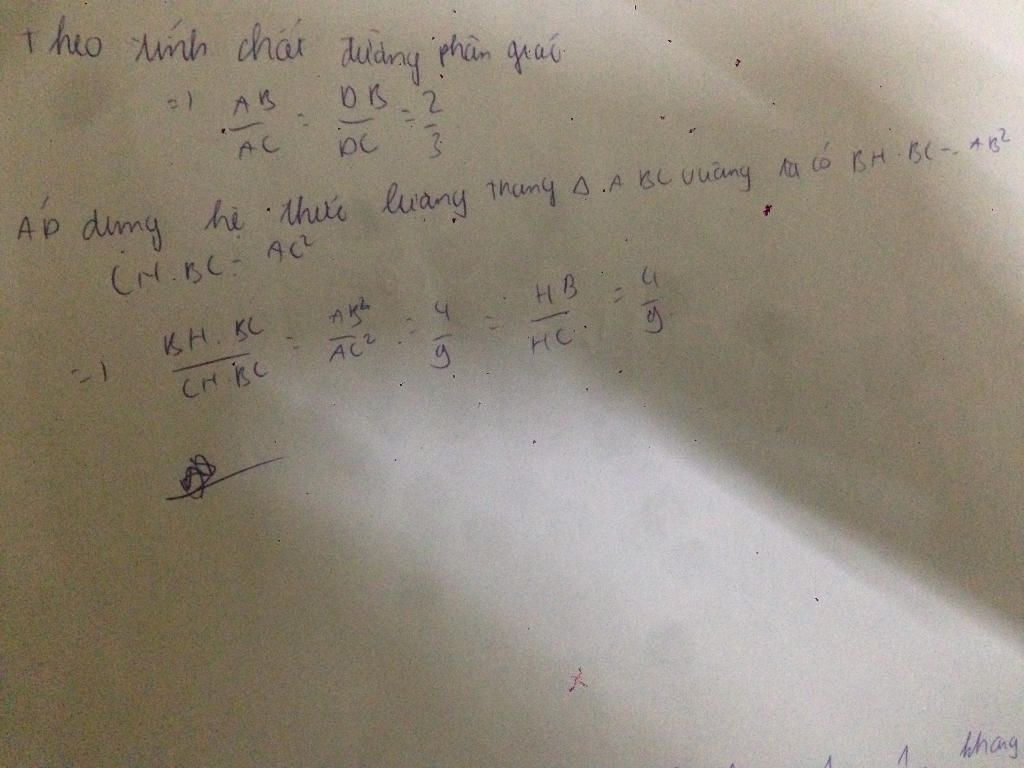 Theo tính chất đường phân giác
=> AB/AC = DB/DC = 2/3
Áp dụng hệ thức lượng trong Δ ABC vuông ta có BH.BC = AB²
CH.BC = AC²
=> BH.BC/CH.BC = AB²/AC² = 4/9 = HB/HC = 4/9
khong